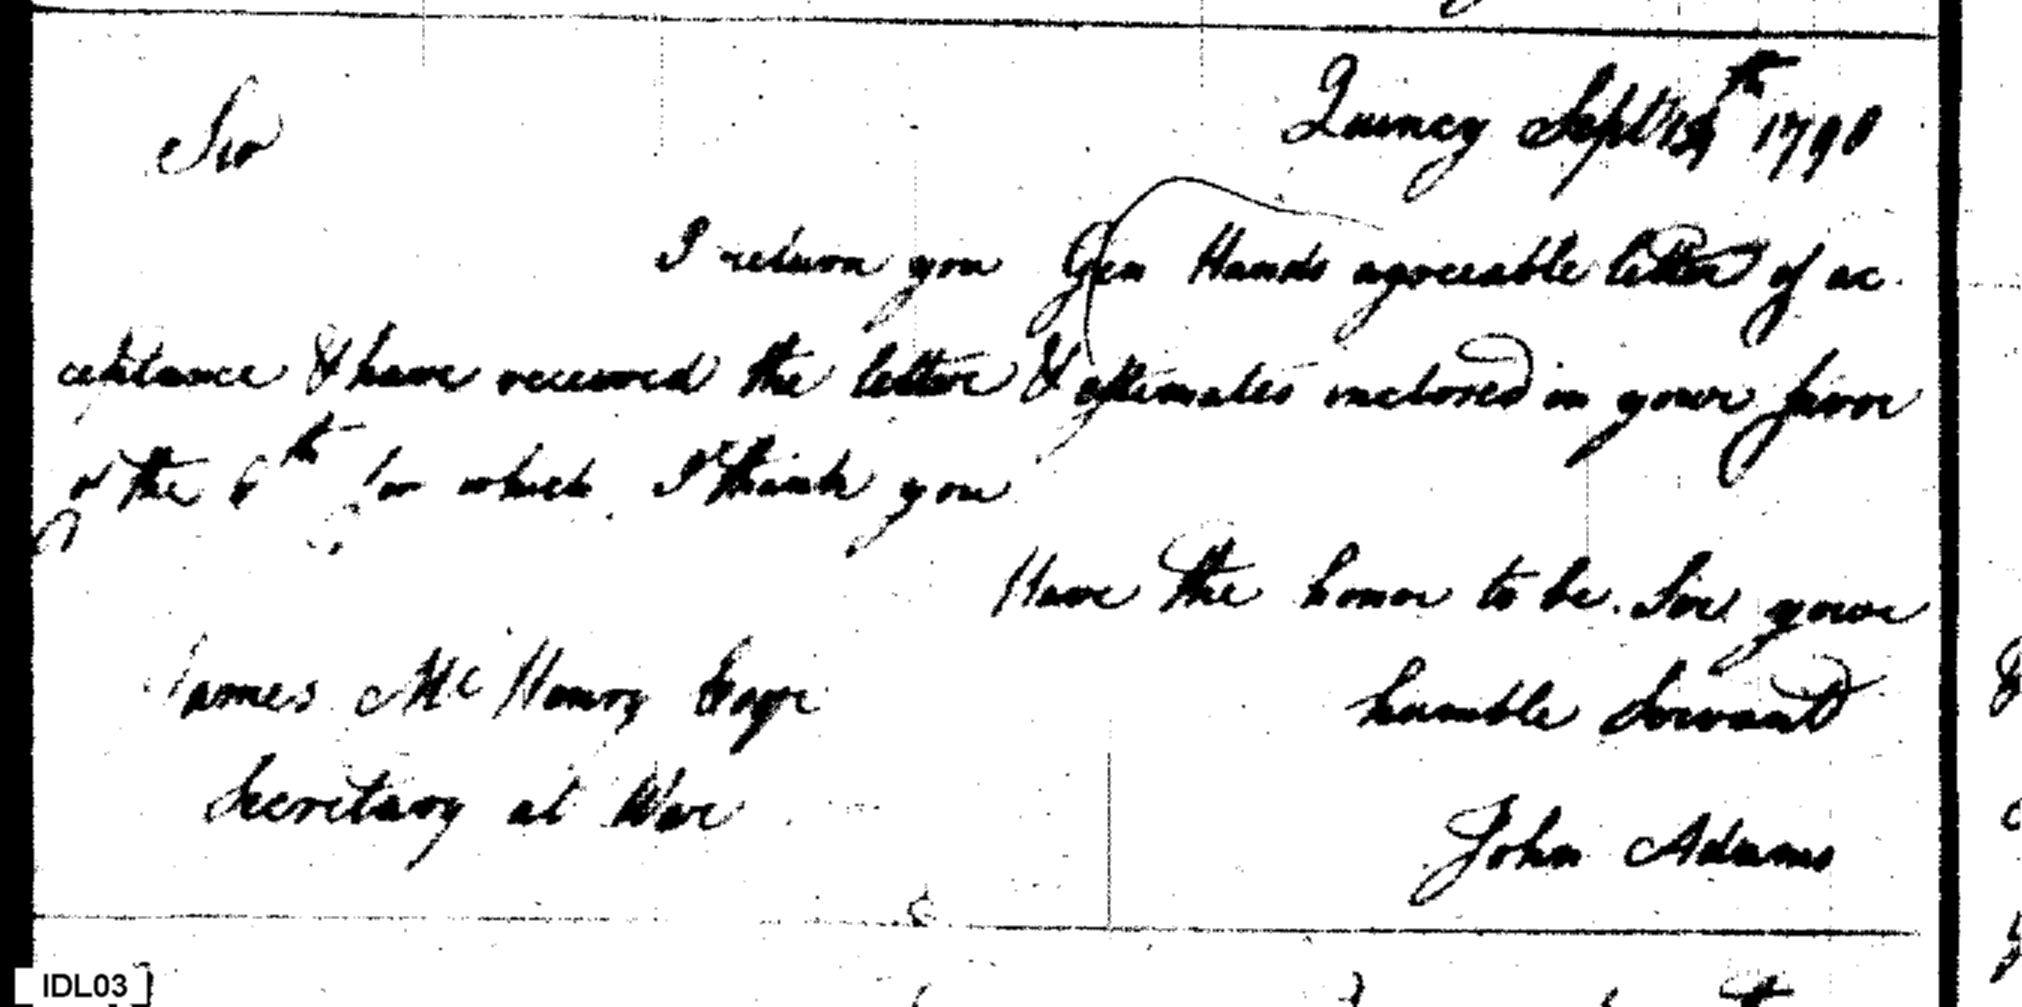 Quincy Sept 14th 1798
Sir
I return you Gen Hands agreeable letter of ac
ceptance & have received the letter & estimates inclosed in your favor
of the 6th for which I thank you
Have the honor to be Sir your
humble Servant
James McHenry Esqr
Secretary at War
John Adams
[IDL03]